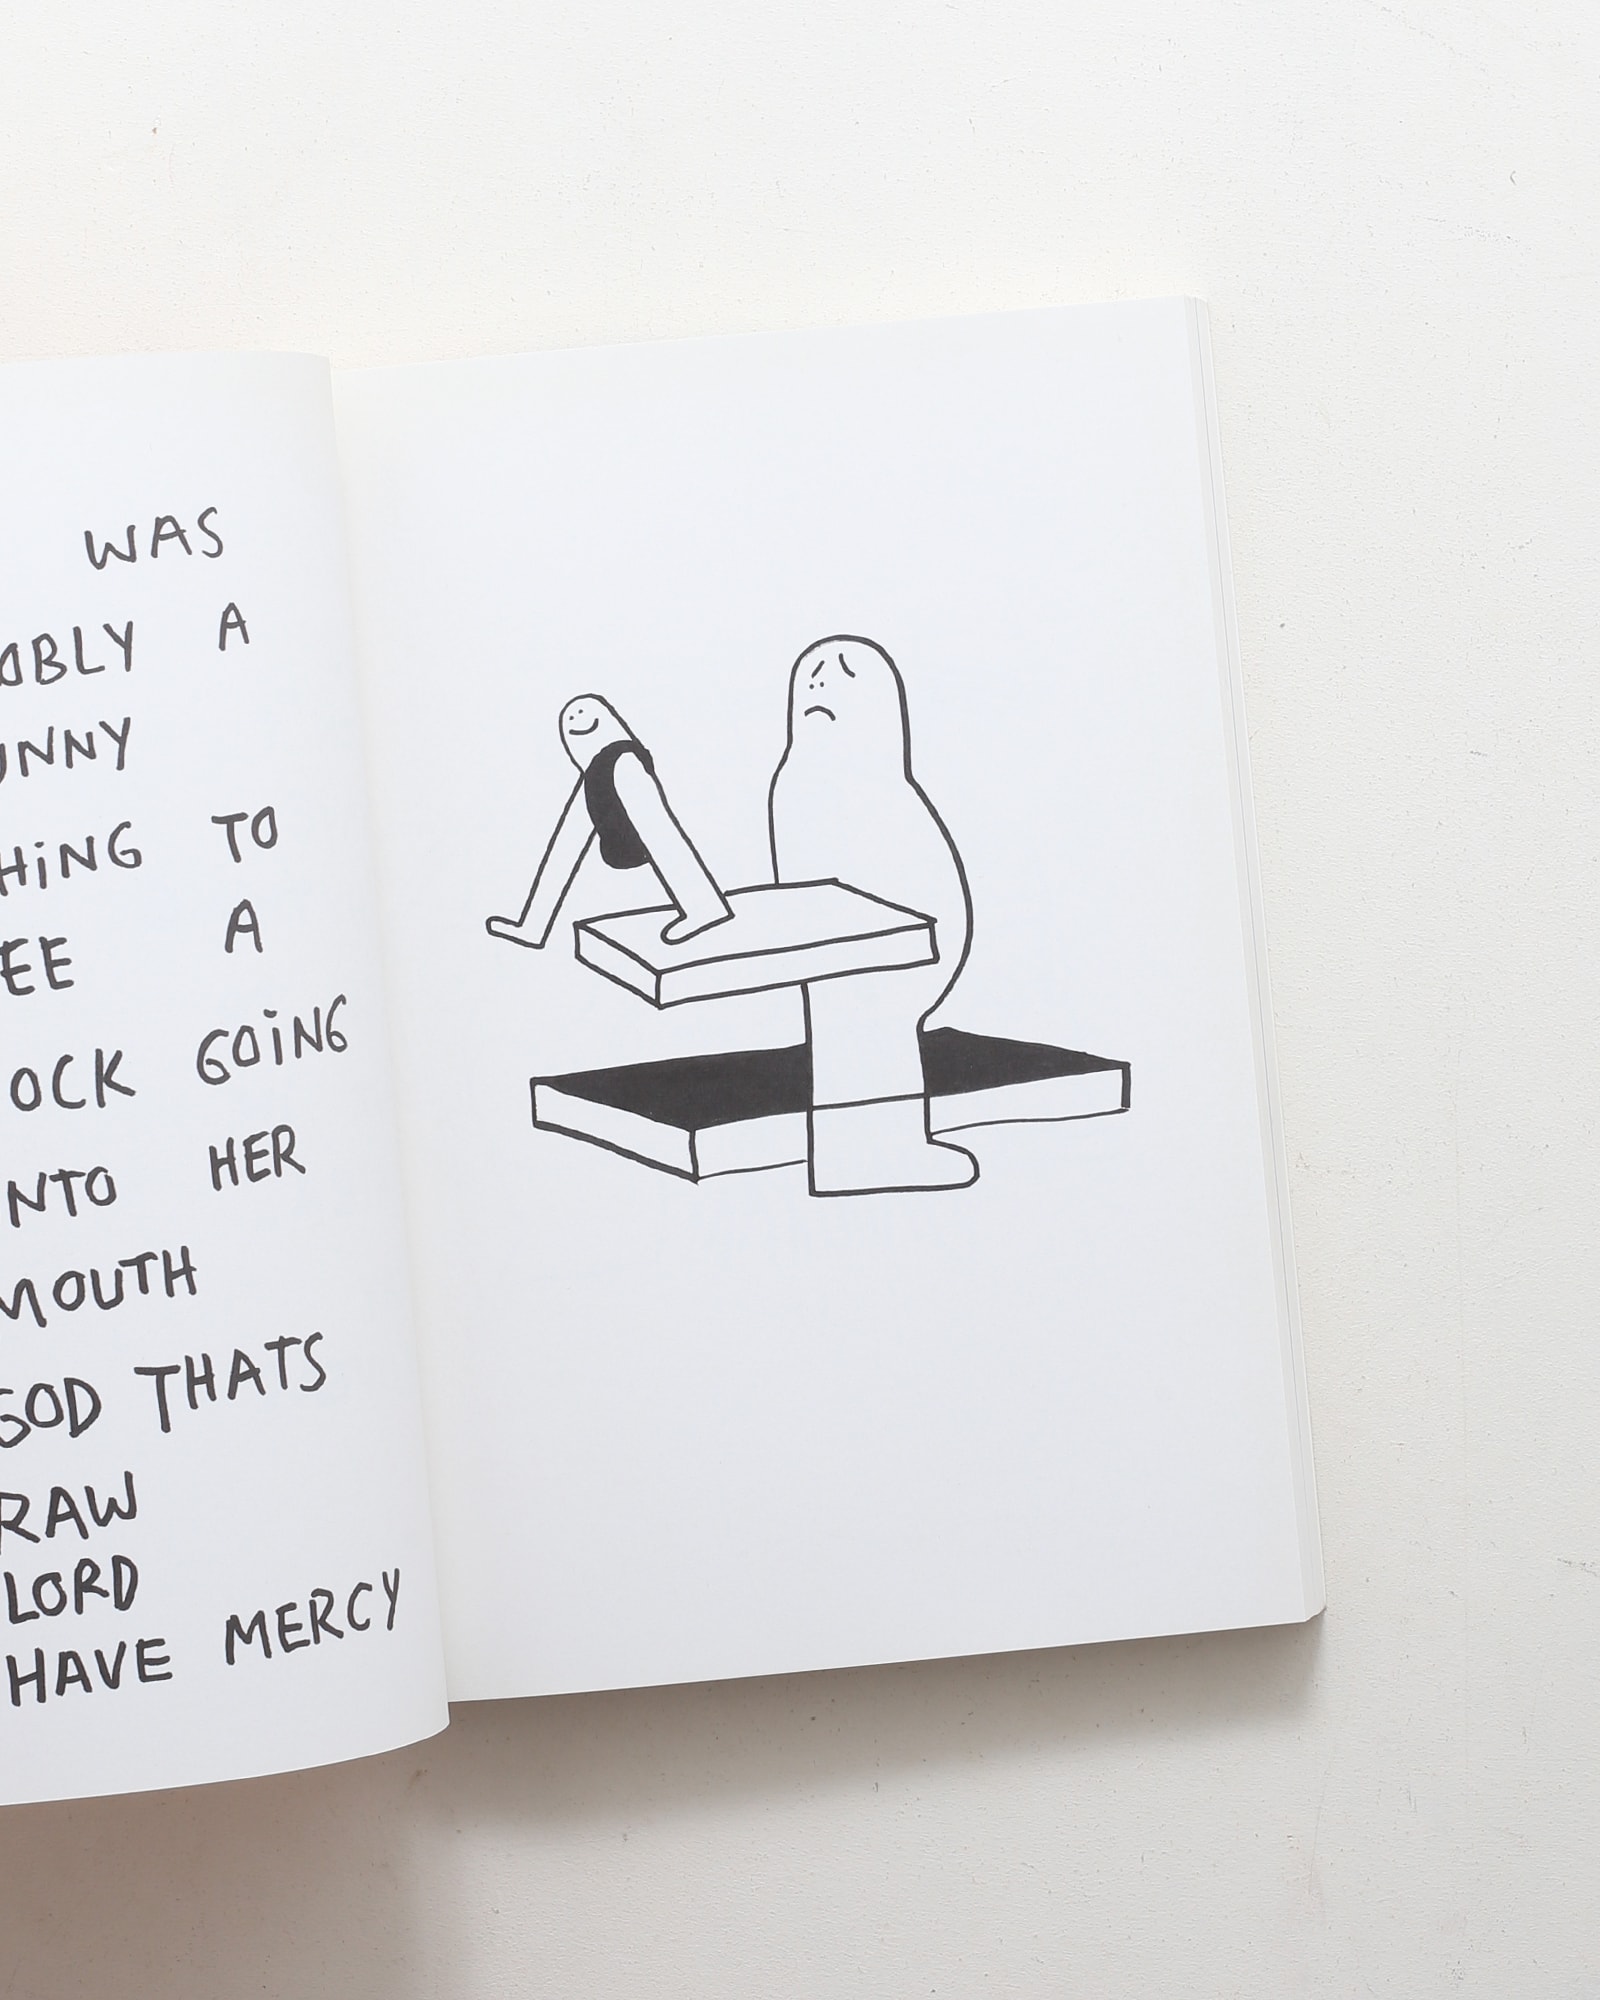 WAS
OBLY A
UNNY
HiNG TO
EE A
OCK GOiNG
NTO HER
MOUTH
GOD THATS
RAW
LORD
HAVE MERCY